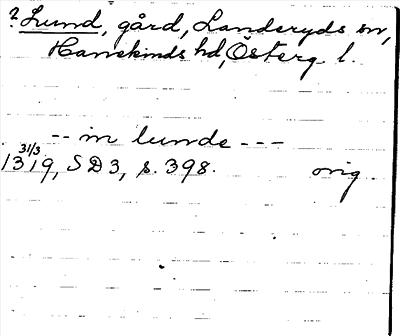 ? Lund, gård, Landeryds sn,
Hanekinds hd, Österg. l.
-- in lunde ---
31/3
1319, SD3, s. 398. orig.